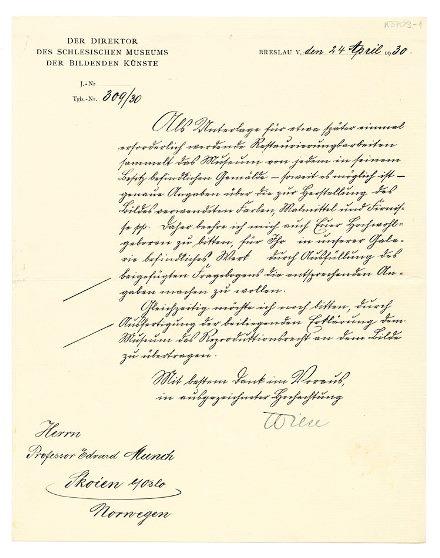 K 5703-1
DER DIREKTOR
DES SCHLESISCHEN MUSEUMS
DER BILDENDEN KÜNSTE
BRESLAU V, den 24 April 1930.
J.-Nr
Tgb.-Nr. 309/30
Als Unterlage für etwa später einmal
erforderlich werdende Restaurierungsarbeiten
sammelt das Museum von jedem in seinem
Besitz befindlichen Gemälde – soweit es möglich ist –
genaue Angaben über die zur Herstellung des
Bildes verwendeten Farben, Malmittel und Firnis-
se pp. Daher beehre ich mich auch Euer Hochwohl-
geboren zu bitten, für Ihr in unserer Gale-
rie befindliches Werk durch Ausfüllung des
beigefügten Fragebogens die entsprechenden An-
gaben machen zu wollen.
Gleichzeitig möchte ich noch bitten, durch
Ausfertigung der beiliegenden Erklärung dem
Museum das Reproduktionsrecht an dem Bilde
zu übertragen.
Mit bestem Dank im Voraus,
in ausgezeichneter Hochachtung
Herrn
Professor Edvard Munch
Skoien b/Oslo
Norwegen